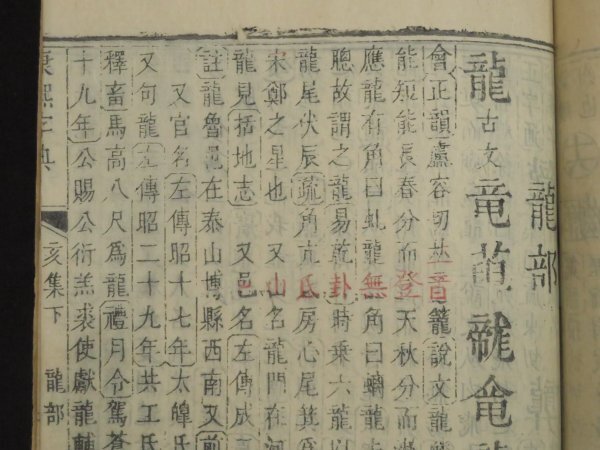 龍部
龍古文竜
會正韻盧容切𠀤音籠說文龍
能短能長春分而登天秋分而
應龍有角曰虬龍無角曰螭龍
聰故謂之龍易乾卦時乘六龍以
龍尾伏辰疏角亢氐房心尾箕爲
宋鄭之星也又山名龍門在河
龍見括地志又邑名左傳成
註龍魯邑在泰山博縣西南又前
又官名左傳昭十七年太皥氏
又句龍左傳昭二十九年共工氏
釋畜馬高八尺爲龍禮月令駕蒼
十九年公賜公衍羔裘使獻龍輔
康熙字典
亥集下
龍部